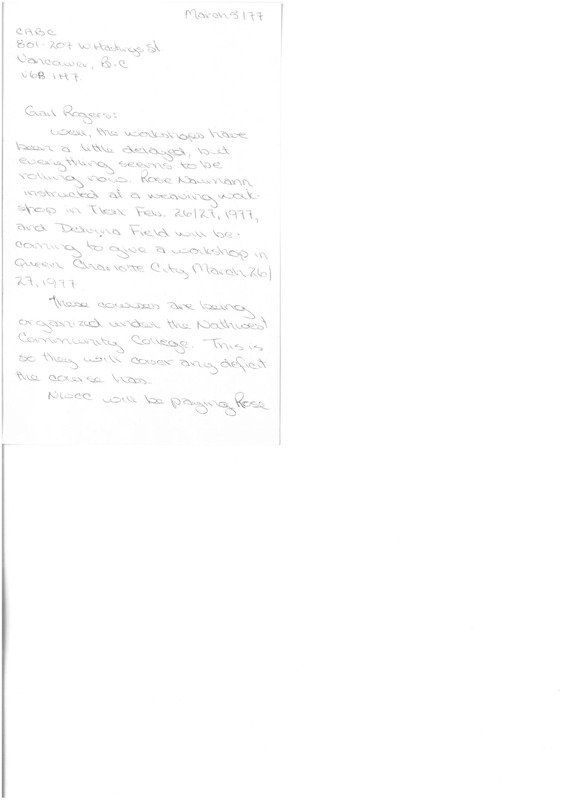 March 5/77
CABC
801-207 W Hastings St
Vancouver, B.C
V6B 1H7
Gail Rogers:
Well, the workshops have
been a little delayed, but
everything seems to be
rolling now. Rose Naumann
instructed at a weaving work-
shop in Tlell Feb. 26/27, 1977,
and Field will be
coming to give a workshop in
Queen Charlotte City March 26/
27, 1977
These courses are being
organized under the Nothwest
Community College. This is
so they will cover any deficit
the course has.
NWCC will be paying Rose